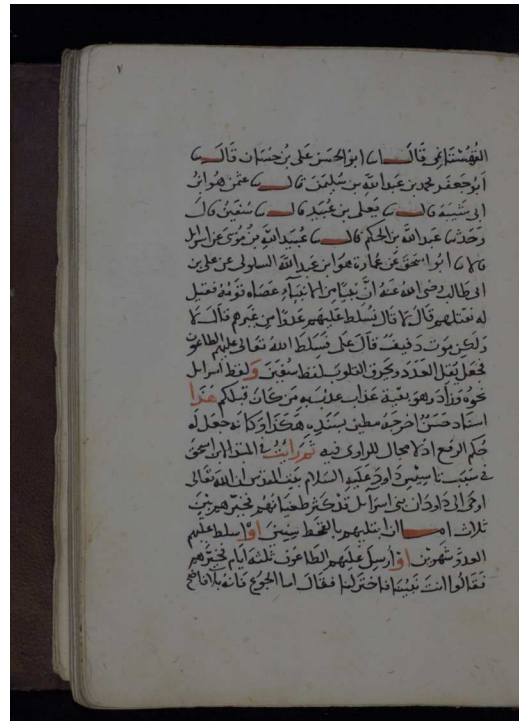 ٧
القهستاني قال انا ابو الحسن علي بن حسان قال ثنا
ابو جعفر محمد بن عبدالله بن سليمن قال ثنا عثمن هو ابن
ابي شيبة قال ثنا يعلي بن عبيد قال ثنا سفين قال
وحدثنا عبدالله بن الحكم قال ثنا عبيد الله بن موسى عن اسرايل
قالا ثنا ابو اسحق عن عمارة هو ابن عبدالله السلولي عن علي بن
ابي طالب رضى الله عنه ان نبيا من الانبياء عصاه قومه فقيل
له نقتلهم قال لا قال نسلط عليهم عدوا من غيرهم قال لا
ولكن موت دفيف قال علي فسلط الله تعالى عليهم الطاعون
فجعل يقتل العدد ويحرق القلوب لفظ سفين ولفظ اسرايل
نحوه وزاد وهو بقية عذاب عذب به من كان قبلكم هذا
اسناد حسن اخرجه مطين بسنده هكذا وكانه جعل له
حكم الرفع اذ لا مجال للراوى فيه ثم رايت في المبتدا لابن اسحق
في سبب داود عليه السلام ان الله تعالى
اوحى الى داود ان بني اسرائل قد كثر طغيانهم فخيرهم بين
ثلاث اما ان ابتليهم بالقحط سنتين او اسلط عليهم
العدو شهرين او ارسل عليهم الطاعون ثلثة ايام فخيرهم
فقالوا انت نبينا فاختر لنا فقال اما الجوع فانه بلا فاضح